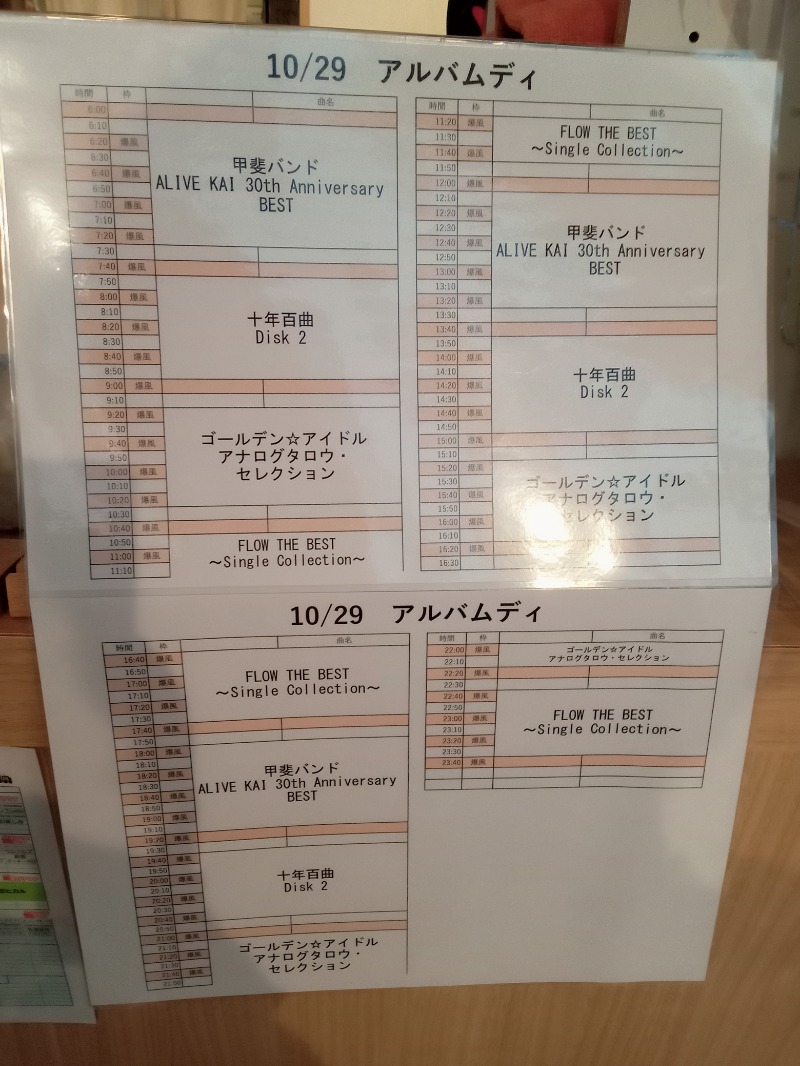 10/29 アルバムディ
時間 枠 曲名
6:00
6:10
6:20 爆風
6:30
6:40 爆風
6:50
7:00 爆風
7:10
7:20 爆風
7:30
7:40 爆風
7:50
8:00 爆風
8:10
8:20 爆風
8:30
8:40 爆風
8:50
9:00 爆風
9:10
9:20 爆風
9:30
9:40 爆風
9:50
10:00 爆風
10:10
10:20 爆風
10:30
10:40 爆風
10:50
11:00 爆風
11:10
甲斐バンド
ALIVE KAI 30th Anniversary
BEST
十年百曲
Disk 2
ゴールデン☆アイドル
アナログタロウ・
セレクション
FLOW THE BEST
～Single Collection～
時間 枠 曲名
11:20 爆風
11:30
11:40 爆風
11:50
12:00 爆風
12:10
12:20 爆風
12:30
12:40 爆風
12:50
13:00 爆風
13:10
13:20 爆風
13:30
13:40 爆風
13:50
14:00 爆風
14:10
14:20 爆風
14:30
14:40 爆風
14:50
15:00 爆風
15:10
15:20 爆風
15:30
15:40 爆風
15:50
16:00 爆風
16:10
16:20 爆風
16:30
FLOW THE BEST
～Single Collection～
甲斐バンド
ALIVE KAI 30th Anniversary
BEST
十年百曲
Disk 2
ゴールデン☆アイドル
アナログタロウ・
セレクション
10/29 アルバムディ
時間 枠 曲名
16:40 爆風
16:50
17:00 爆風
17:10
17:20 爆風
17:30
17:40 爆風
17:50
18:00 爆風
18:10
18:20 爆風
18:30
18:40 爆風
18:50
19:00 爆風
19:10
19:20 爆風
19:30
19:40 爆風
19:50
20:00 爆風
20:10
20:20 爆風
20:30
20:40 爆風
20:50
21:00 爆風
21:10
21:20 爆風
21:30
21:40 爆風
FLOW THE BEST
～Single Collection～
甲斐バンド
ALIVE KAI 30th Anniversary
BEST
十年百曲
Disk 2
ゴールデン☆アイドル
アナログタロウ・
セレクション
時間 枠 曲名
22:00 爆風
22:10
22:20 爆風
22:30
22:40 爆風
22:50
23:00 爆風
23:10
23:20 爆風
23:30
23:40 爆風
ゴールデン☆アイドル
アナログタロウ・セレクション
FLOW THE BEST
～Single Collection～